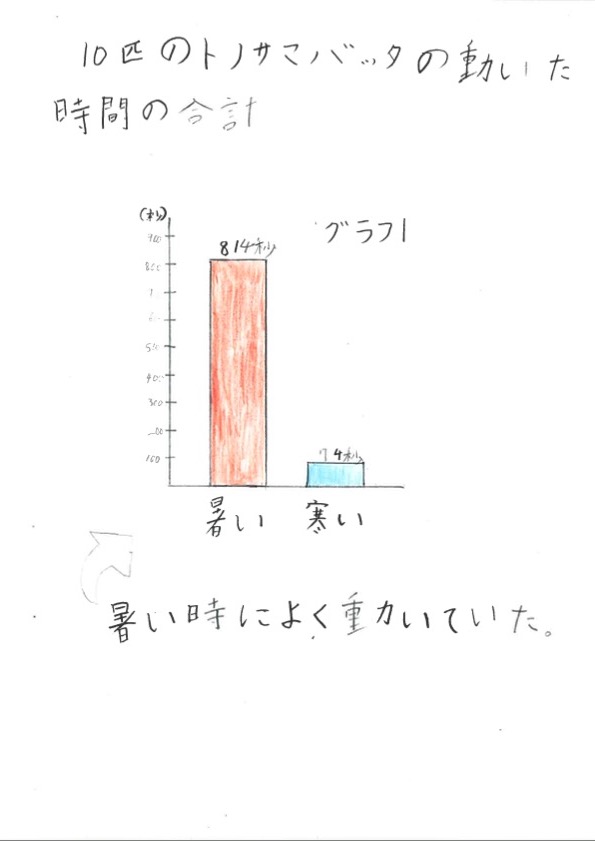 10匹のトノサマバッタの動いた
時間の合計
グラフ1
(秒)
900
814秒
800
500
400
300
74秒
100
暑い 寒い
暑い時によく動いていた。